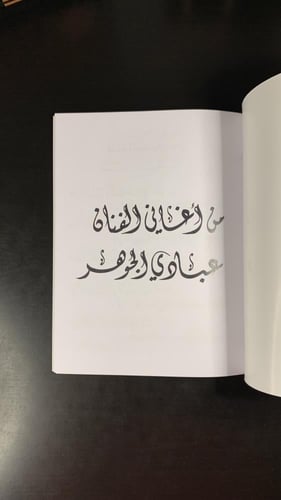 من أغاني الفنان
عبادي الجوهر